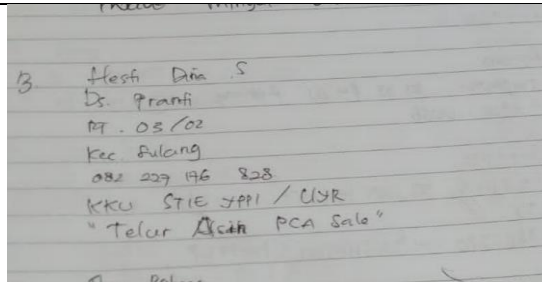 13. Hesti Dina S
Ds. Pranti
RT. 03/02
Kec. Sulang
082 227 176 828
KKU STIE YPPI /
"Telur Asin PCA Sale"